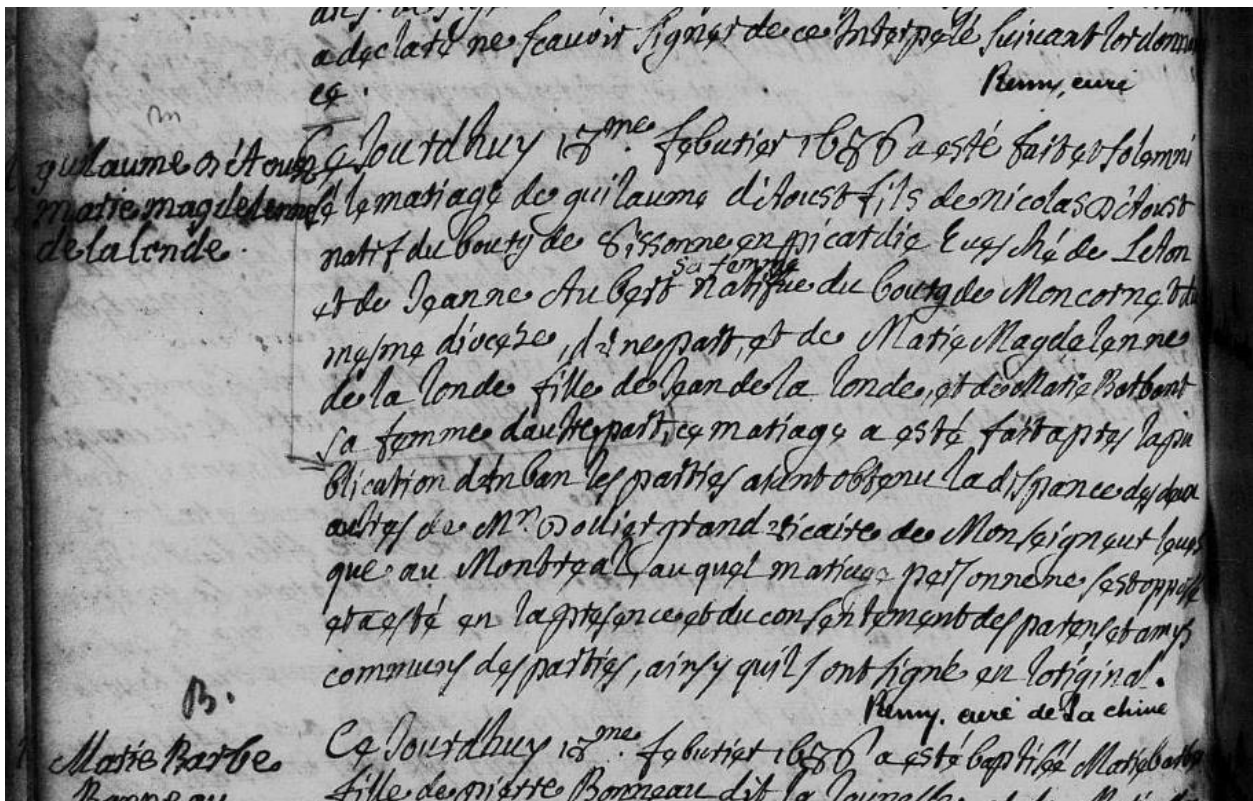 a declaré ne scavoir signer de ce Interpelé suivant lordonn
ce.
Remy, curé
m
guilaume d'Aoust
marie magdelenne
de la londe.
Ce Jourdhuy 18me. febvrier 1686 a esté fait et solemni
sé le mariage de guilaume d'Aoust fils de nicolas d'Aoust
natif du bourg de Sissonne en picardie Evesché de LeAon
et de Jeanne Aubert sa femme natifve du bourg de Moncornet du
mesme diocèze, d'une part, et de Marie Magdelenne
de la londe fille de Jean de la londe, et de Marie Barbant
sa femme dautre part, ce mariage a esté fait apres la pu
blication d'un ban les parties aiant obtenu la dispance des deux
autres de Mr. Dollier grand vicaire de Monseigneur leves
que au Montreal, au quel mariage personne ne sest opposé
et a esté en la presence et du consentement des parens et amys
communs des parties, ainsy quils ont signé en loriginal.
Remy. curé de La chine
B.
Marie Barbe
Bonneau
Ce Jourdhuy 18me. febvrier 1686 a esté baptisée Marie barbe
fille de pierre Bonneau dit la Jeunesse